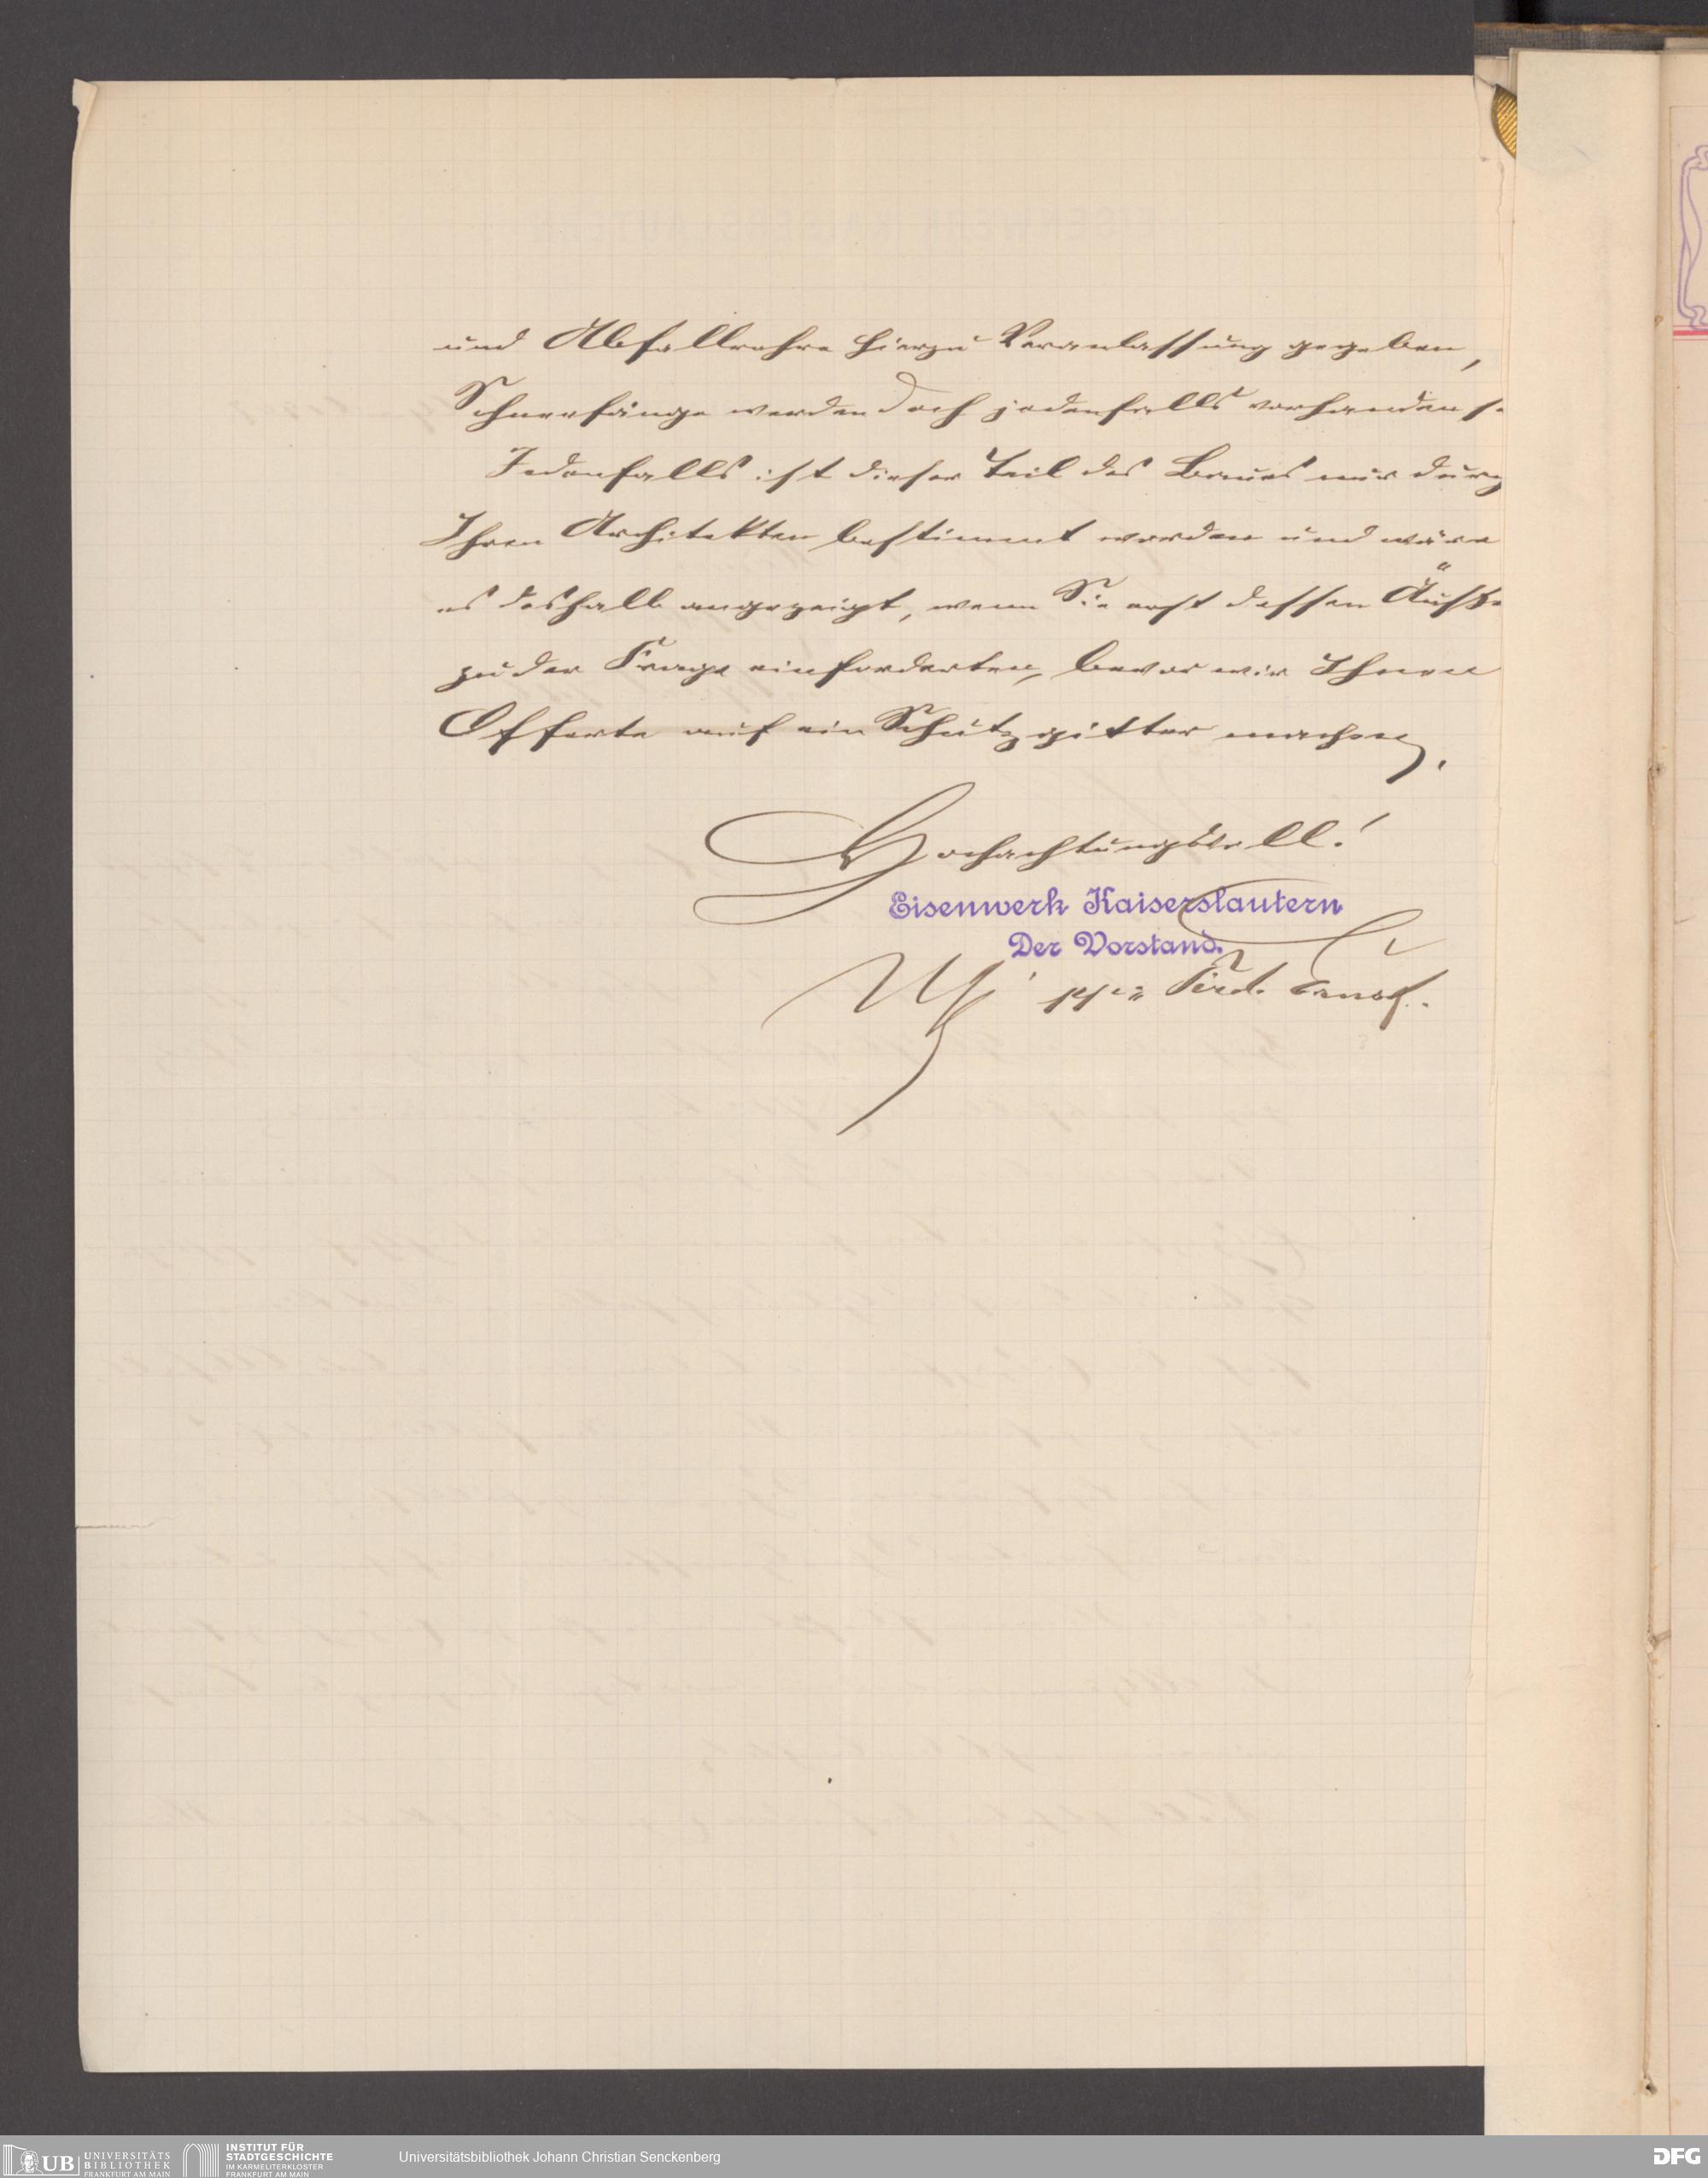 und Abfallrohre hierzu Veranlassung gegeben,
Schneefänge werden doch jedenfalls vorhanden s.
Jedenfalls ist dieser Teil des Baues nur durch
Ihren Architekten bestimmt worden und wäre
es deshalb angezeigt, wenn Sie erst dessen Äuße
zu der Frage einforderten, bevor wir Ihnen
Offerte auf ein Schutzgitter machen.
Hochachtungsvoll!
Eisenwerk Kaiserslautern
Der Vorstand.
ppa Ferd.
UB UNIVERSITÄTS BIBLIOTHEK FRANKFURT AM MAIN
INSTITUT FÜR STADTGESCHICHTE IM KARMELITERKLOSTER FRANKFURT AM MAIN
Universitätsbibliothek Johann Christian Senckenberg
DFG